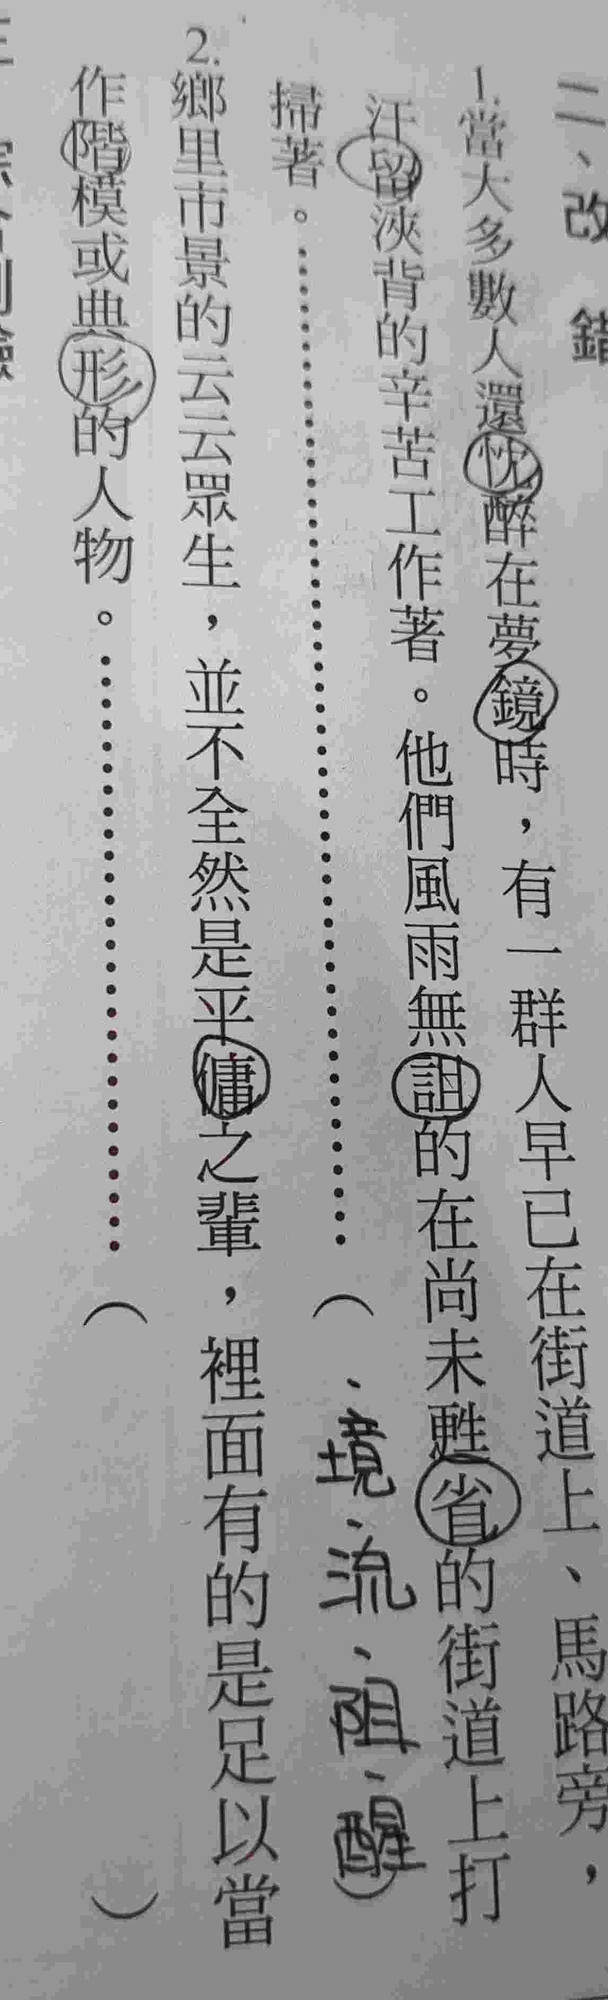 二、改錯
1.當大多數人還忱醉在夢鏡時，有一群人早已在街道上、馬路旁，
汗留浹背的辛苦工作著。他們風雨無詛的在尚未甦省的街道上打
掃著。……………………………………（　、境、流、阻、醒）
2.鄉里市景的云云眾生，並不全然是平傭之輩，裡面有的是足以當
作階模或典形的人物。……………………………………（　　　）